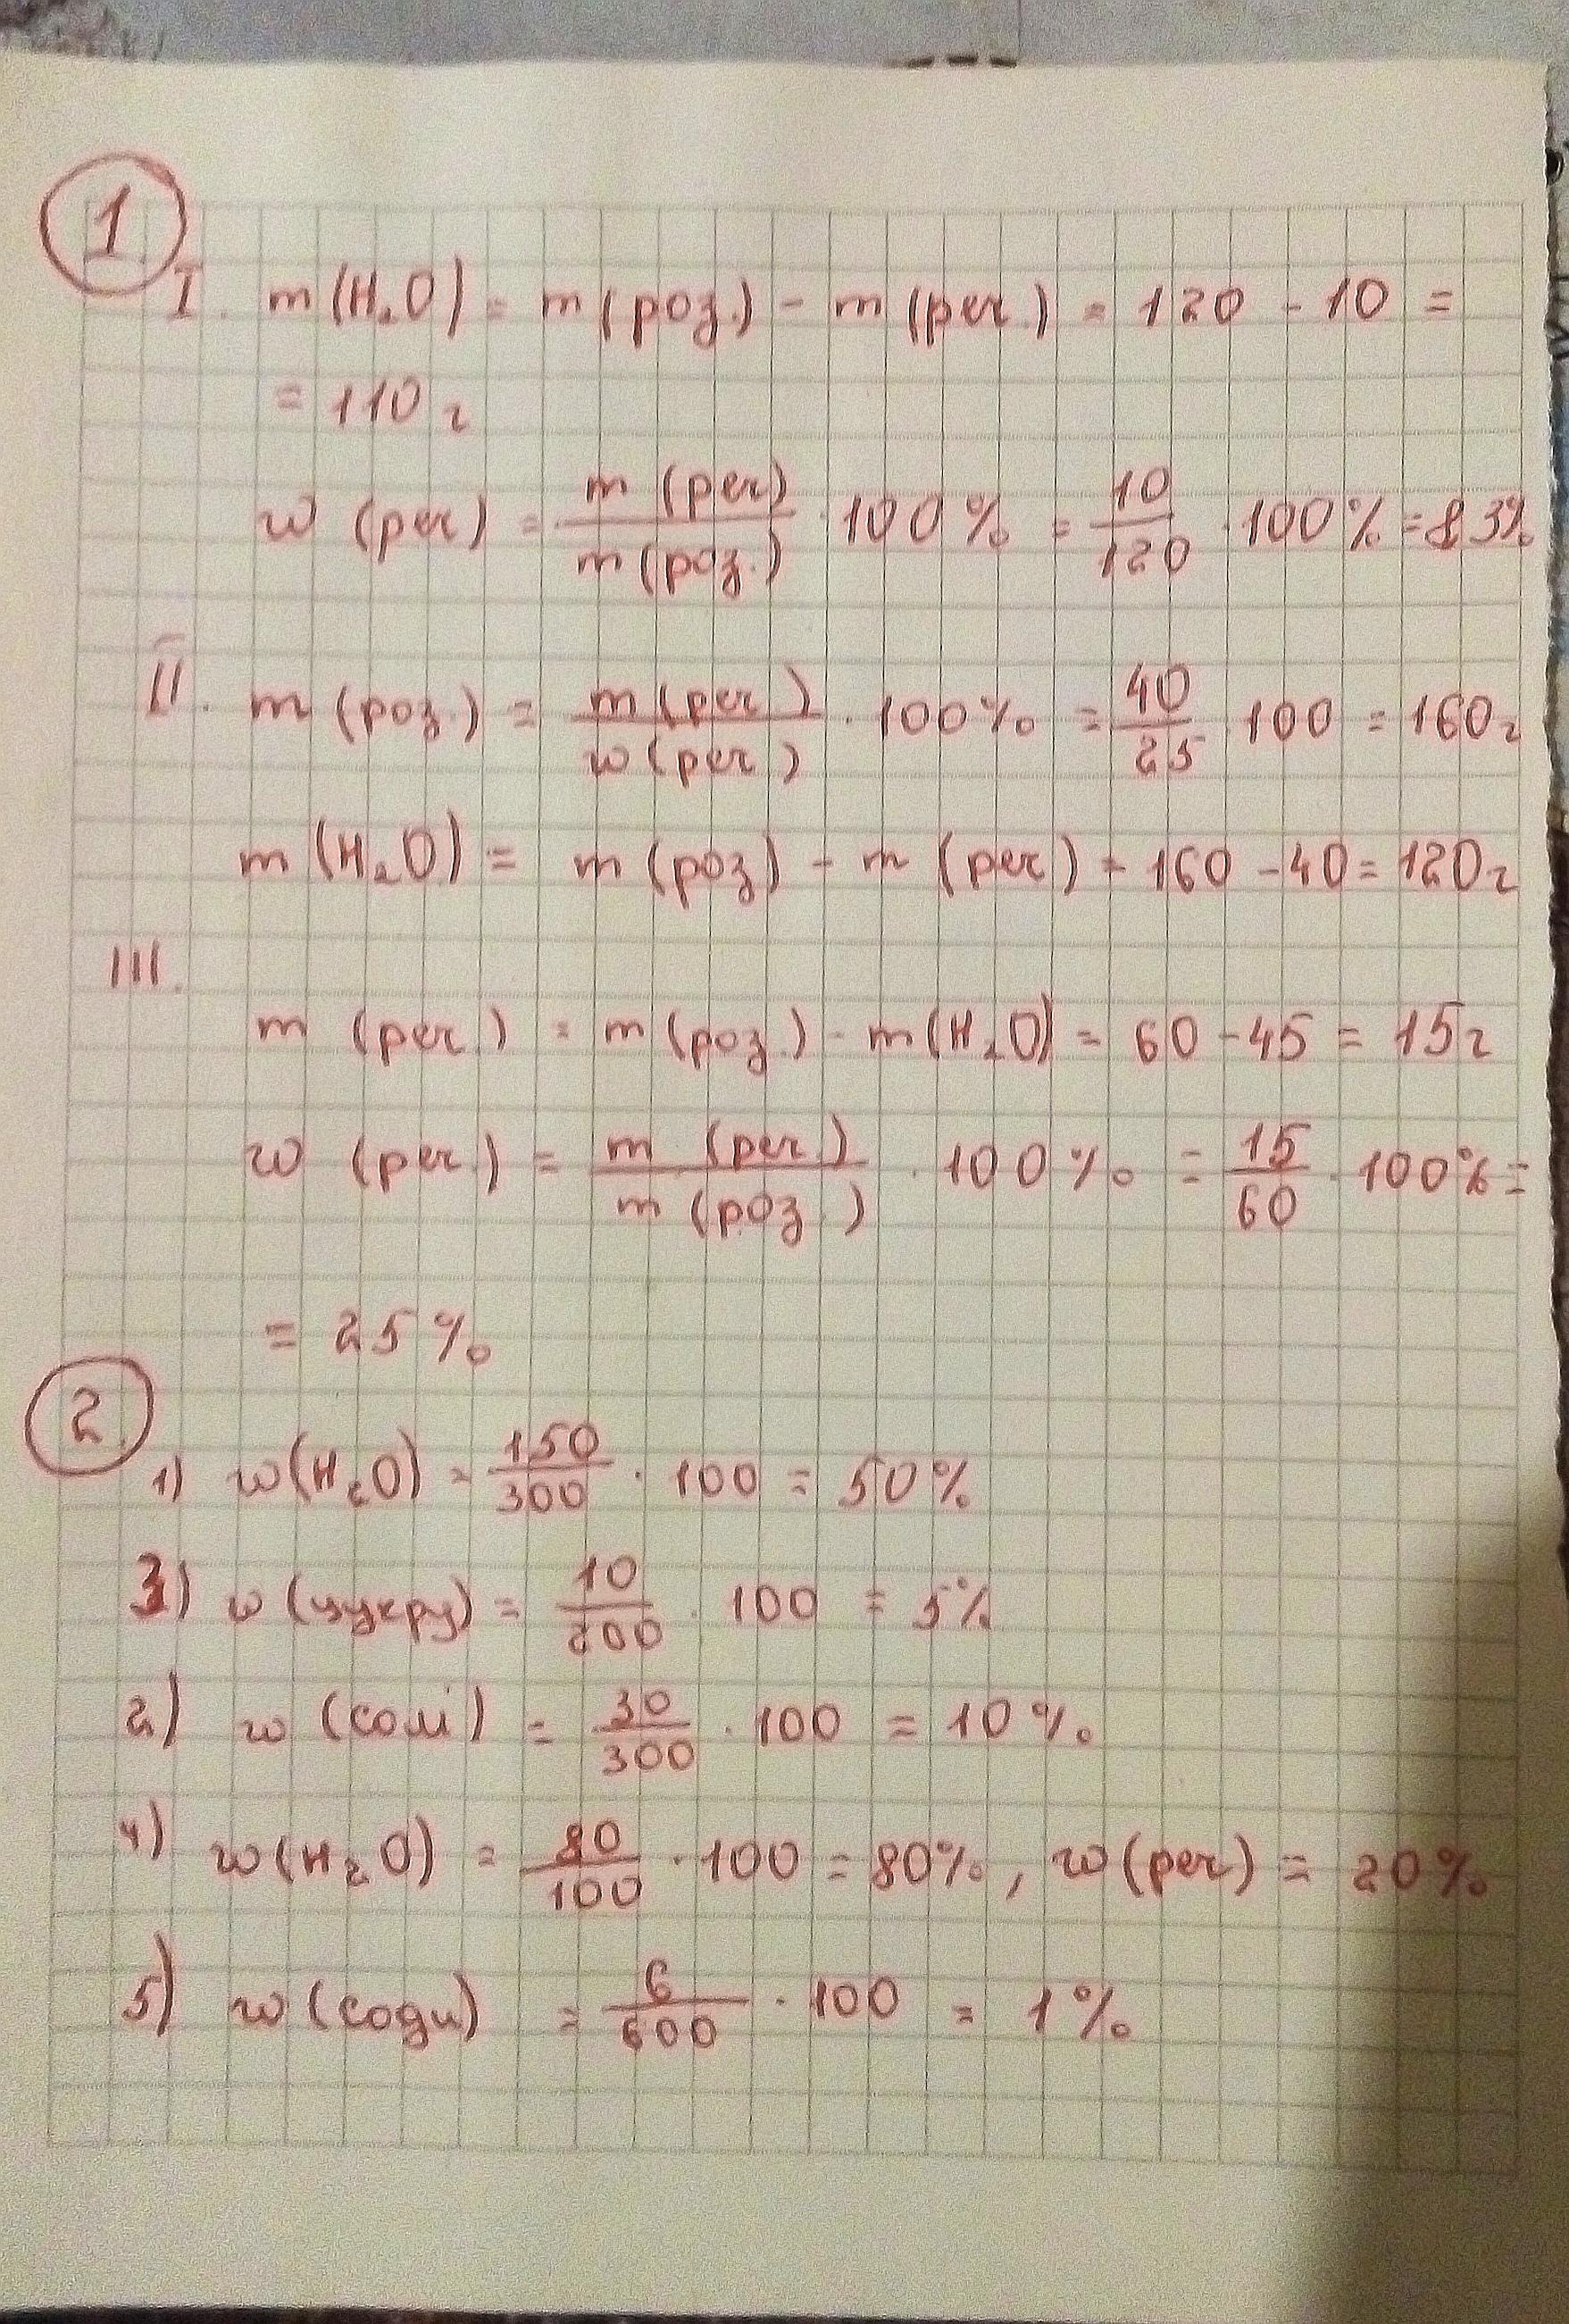 1
I. m(H₂O) = m(роз.) - m(реч.) = 120 - 10 =
= 110 г
w (реч) = m (реч) / m (роз.) · 100% = 10 / 120 · 100% = 8,3%
II. m (роз.) = m (реч) / w (реч) · 100% = 40 / 25 · 100 = 160 г
m (H₂O) = m (роз) - m (реч) = 160 - 40 = 120 г
III.
m (реч.) = m (роз.) - m(H₂O) = 60 - 45 = 15 г
w (реч.) = m (реч) / m (роз.) · 100% = 15 / 60 · 100% =
= 25 %
2
1) w(H₂O) = 150 / 300 · 100 = 50%
3) w (цукру) = 10 / 200 · 100 = 5%
2) w (солі) = 30 / 300 · 100 = 10%
4) w(H₂O) = 80 / 100 · 100 = 80%, w(реч) = 20%
5) w (соди) = 6 / 600 · 100 = 1%